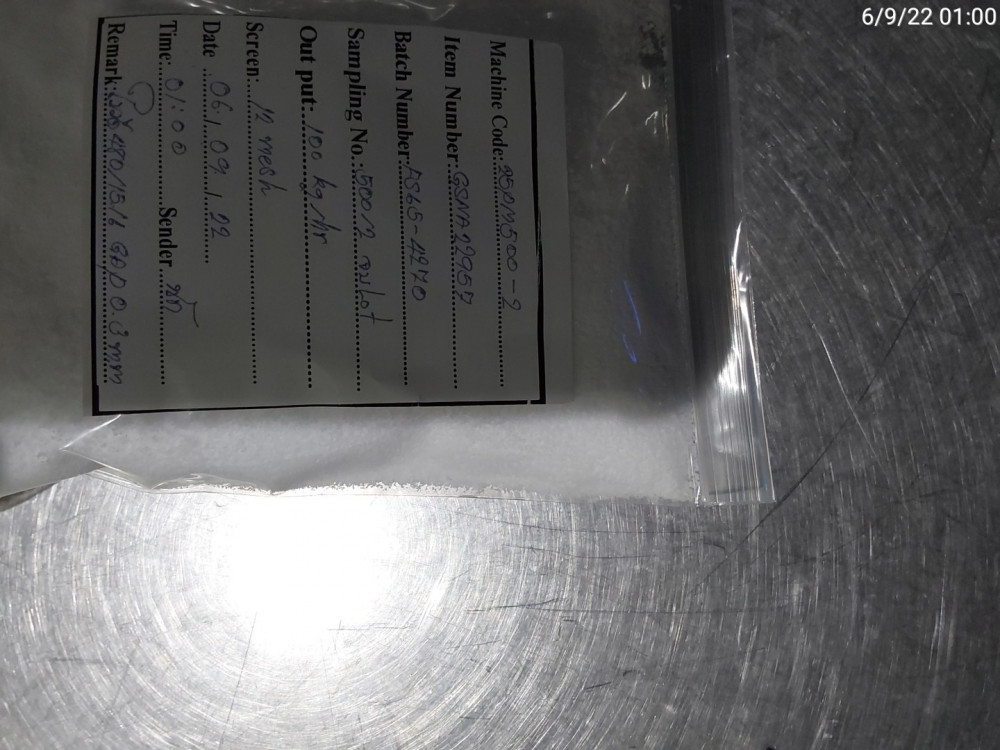 6/9/22 01:00
Machine Code:
Item Number: GSNA22957
Batch Number: AS65-4270
Sampling No.: 500/2 จบLot
Out put: 100 kg/hr
Screen: 12 mesh
Date 06/09/22
Time: 01:00 Sender
Remark: GAP 0.3 mm